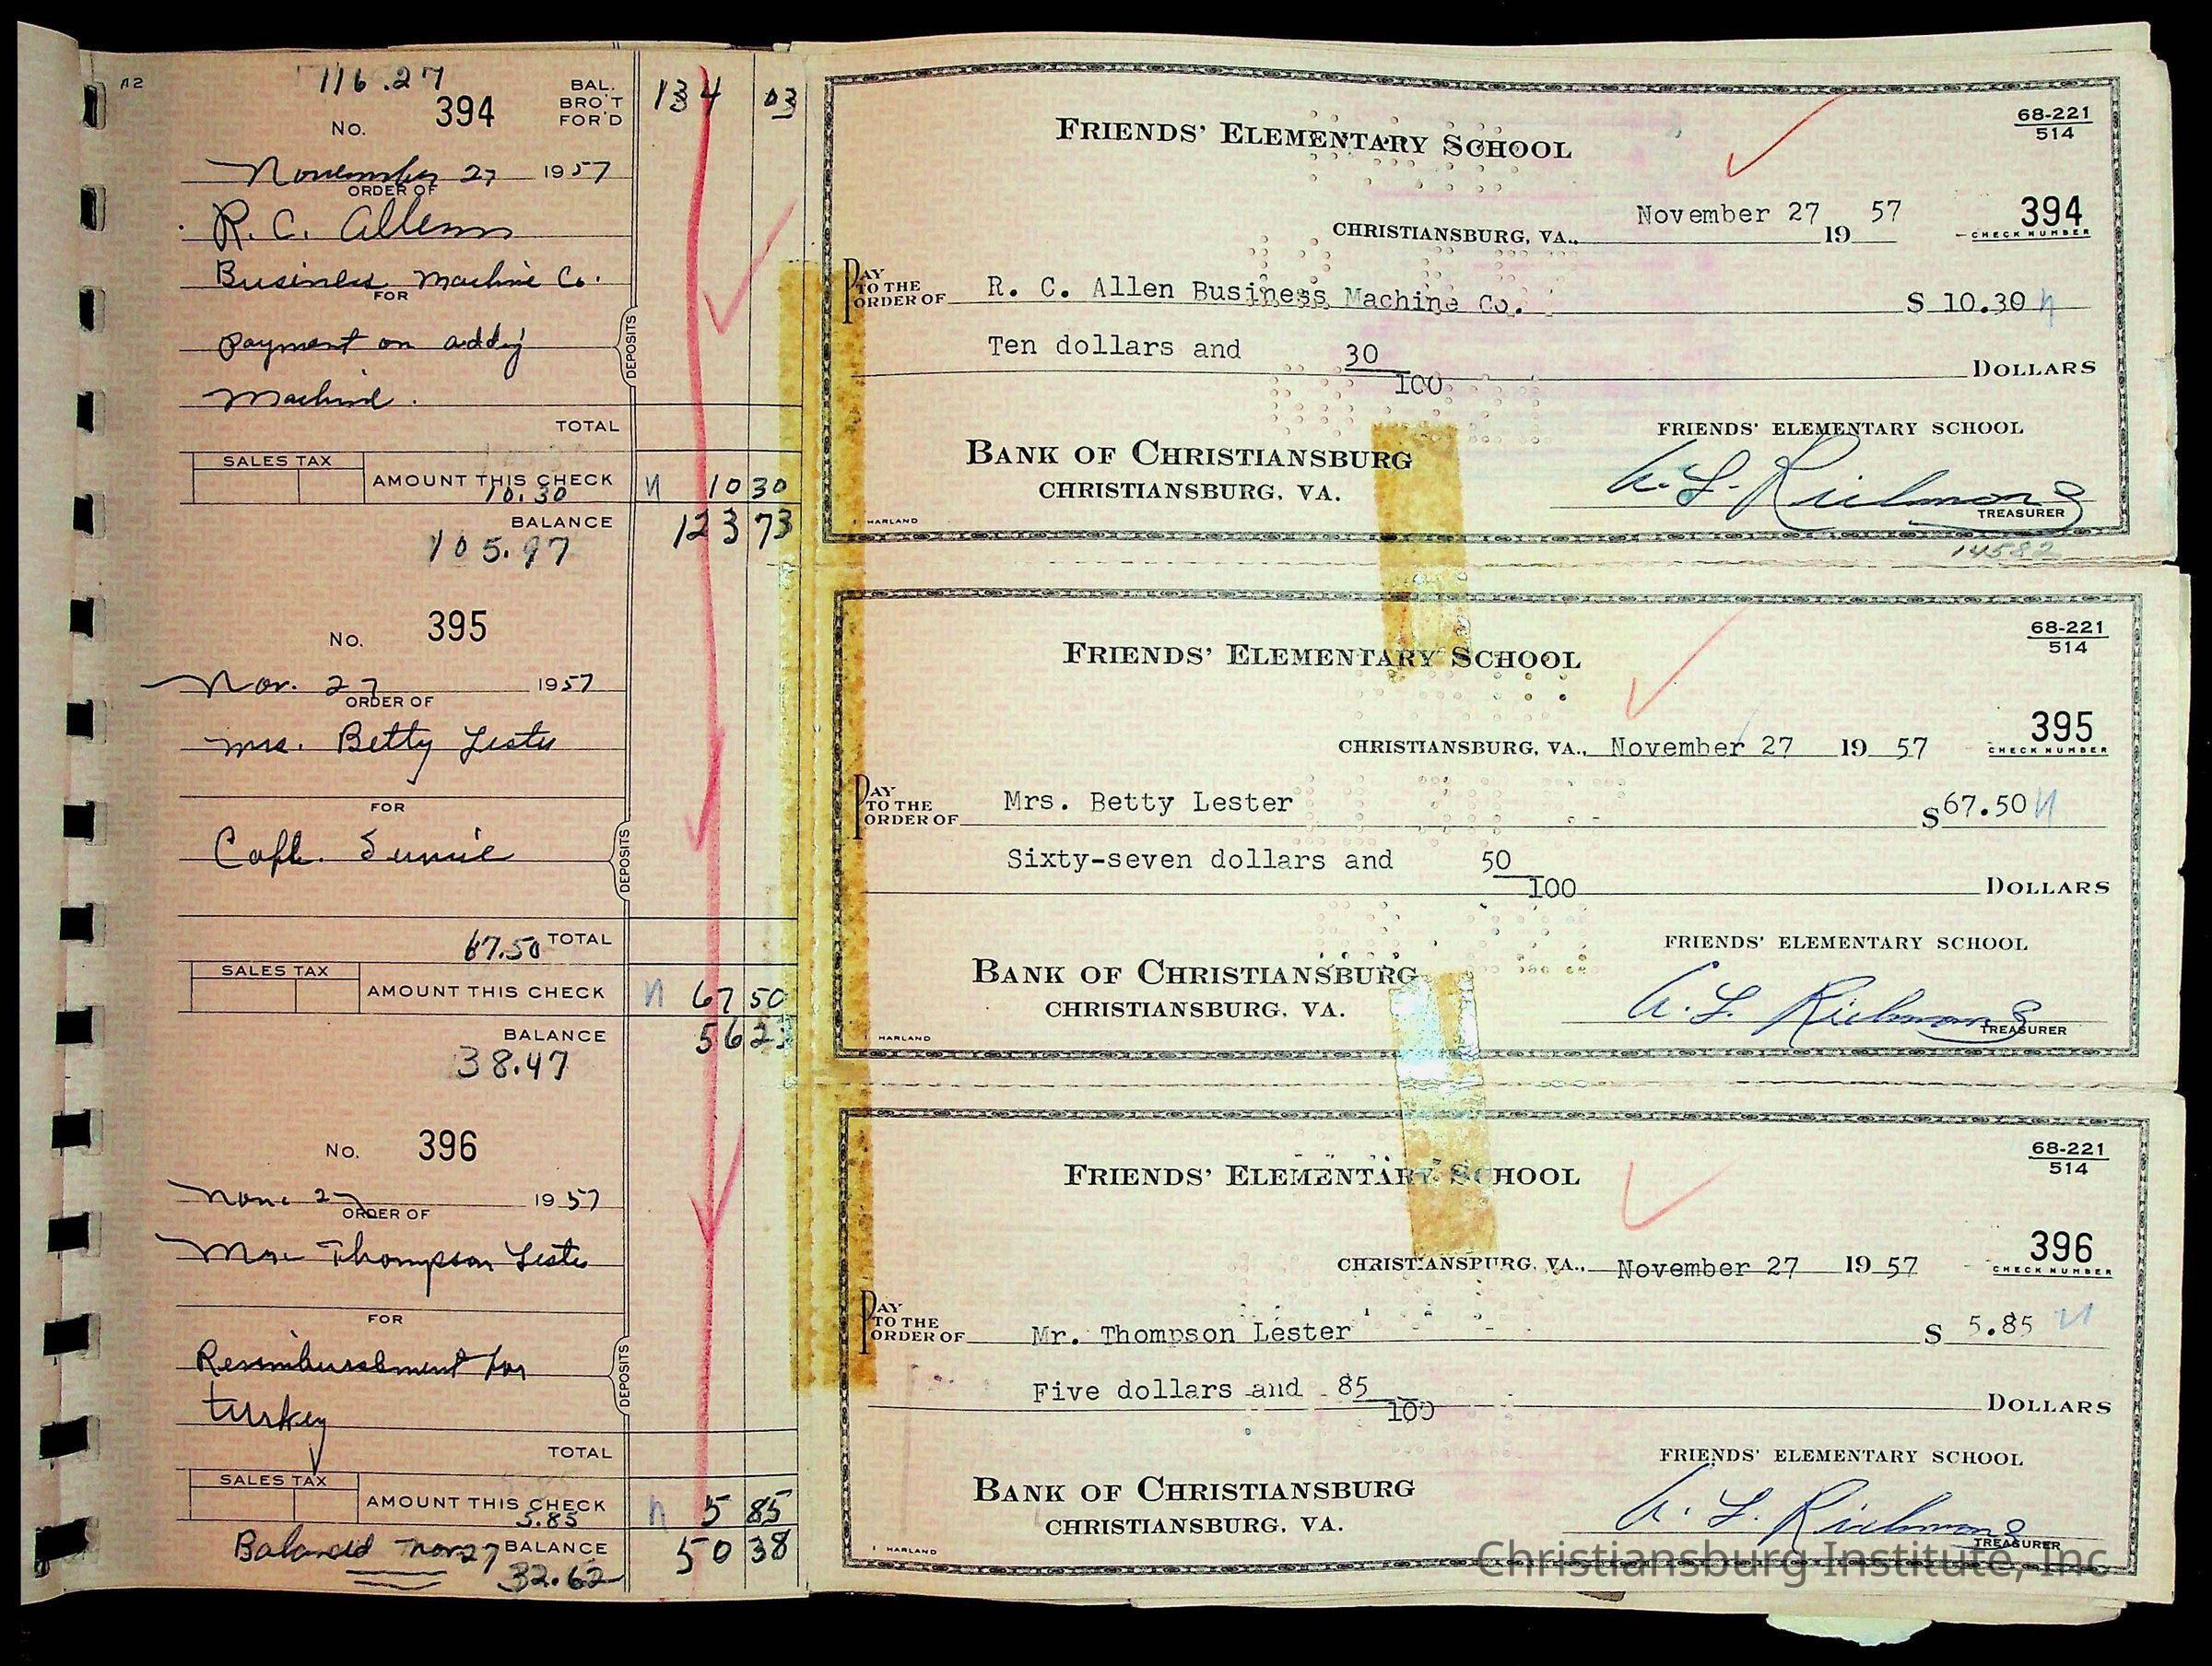 116.27
No. 394
BAL. BRO'T FOR'D 134 03
November 27 1957
ORDER OF
R. C. Allens
Business Machine Co.
FOR
payment on addg
Machine.
DEPOSITS
TOTAL
SALES TAX
AMOUNT THIS CHECK N 10 30
10.30
BALANCE 123 73
105.97
No. 395
Nov. 27 1957
ORDER OF
Mrs. Betty Lester
FOR
Cafe.
DEPOSITS
67.50 TOTAL
SALES TAX
AMOUNT THIS CHECK N 67 50
BALANCE 56 23
38.47
No. 396
Nov. 27 1957
ORDER OF
Mr. Thompson Lester
FOR
Reimbursement for
turkey
DEPOSITS
TOTAL
SALES TAX
AMOUNT THIS CHECK N 5 85
5.85
Balanced Nov 27 BALANCE 50 38
32.62
FRIENDS' ELEMENTARY SCHOOL
68-221
514
CHRISTIANSBURG, VA., November 27 19 57
394
CHECK NUMBER
PAY TO THE ORDER OF R. C. Allen Business Machine Co. $ 10.30 N
Ten dollars and 30/100 DOLLARS
FRIENDS' ELEMENTARY SCHOOL
BANK OF CHRISTIANSBURG
CHRISTIANSBURG, VA.
A. L. Richmond
TREASURER
HARLAND
14582
FRIENDS' ELEMENTARY SCHOOL
68-221
514
CHRISTIANSBURG, VA., November 27 19 57
395
CHECK NUMBER
PAY TO THE ORDER OF Mrs. Betty Lester $67.50 N
Sixty-seven dollars and 50/100 DOLLARS
FRIENDS' ELEMENTARY SCHOOL
BANK OF CHRISTIANSBURG
CHRISTIANSBURG, VA.
A. L. Richmond
TREASURER
HARLAND
FRIENDS' ELEMENTARY SCHOOL
68-221
514
CHRISTIANSBURG, VA., November 27 19 57
396
CHECK NUMBER
PAY TO THE ORDER OF Mr. Thompson Lester $ 5.85 N
Five dollars and 85/100 DOLLARS
FRIENDS' ELEMENTARY SCHOOL
BANK OF CHRISTIANSBURG
CHRISTIANSBURG, VA.
A. L. Richmond
TREASURER
HARLAND
Christiansburg Institute, Inc